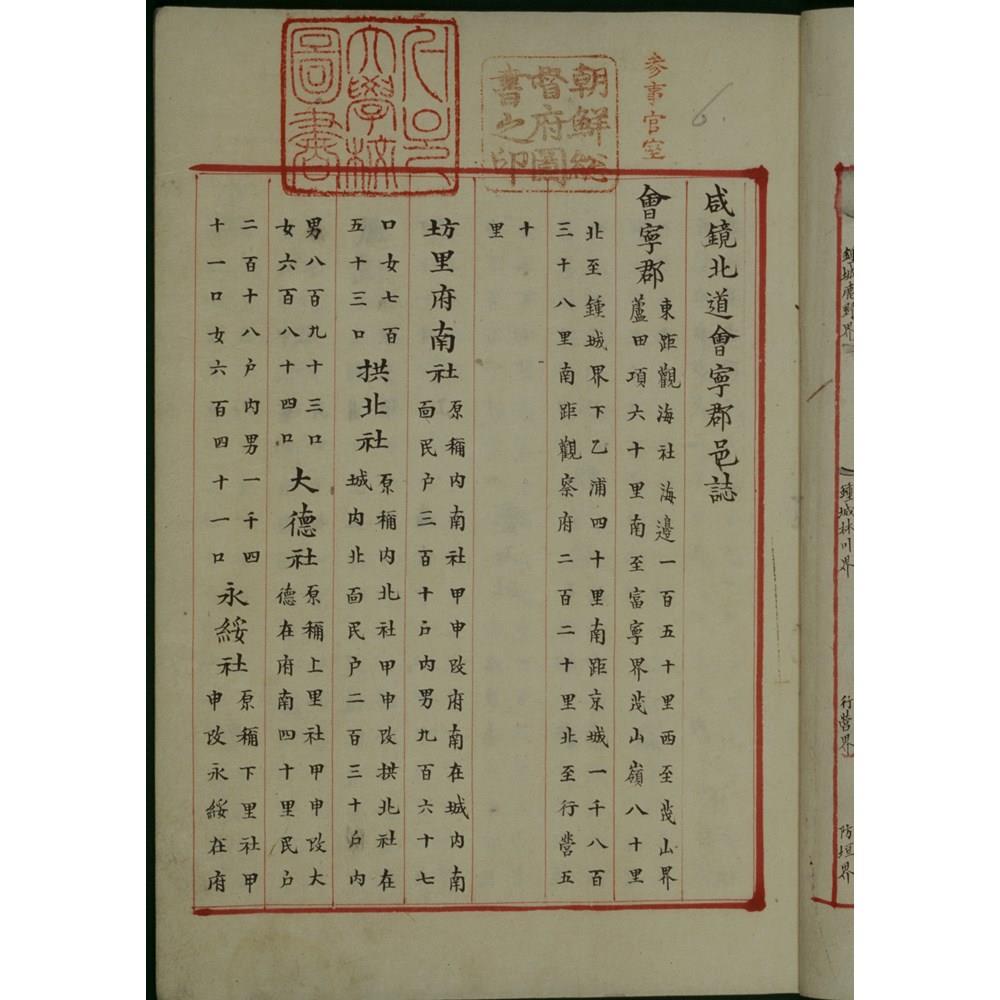 鍾城林川界
行營界
防垣界
參事官室
朝鮮總
督府圖
書之印
서울
大學校
圖書
咸鏡北道會寧郡邑誌
會寧郡
東距觀海社海邊一百五十里西至茂山界
蘆田項六十里南至富寧界茂山嶺八十里
北至鍾城界下乙浦四十里南距京城一千八百
三十八里南距觀察府二百二十里北至行營五
十
里
坊里府南社
原稱內南社甲申改府南在城內南
面民戶三百十戶內男九百六十七
口女七百
五十三口
拱北社
原稱內北社甲申改拱北社在
城內北面民戶二百三十戶內
男八百九十三口
女六百八十四口
大德社
原稱上里社甲申改大
德在府南四十里民戶
二百十八戶內男一千四
十一口女六百四十一口
永綏社
原稱下里社甲
申改永綏在府
6.